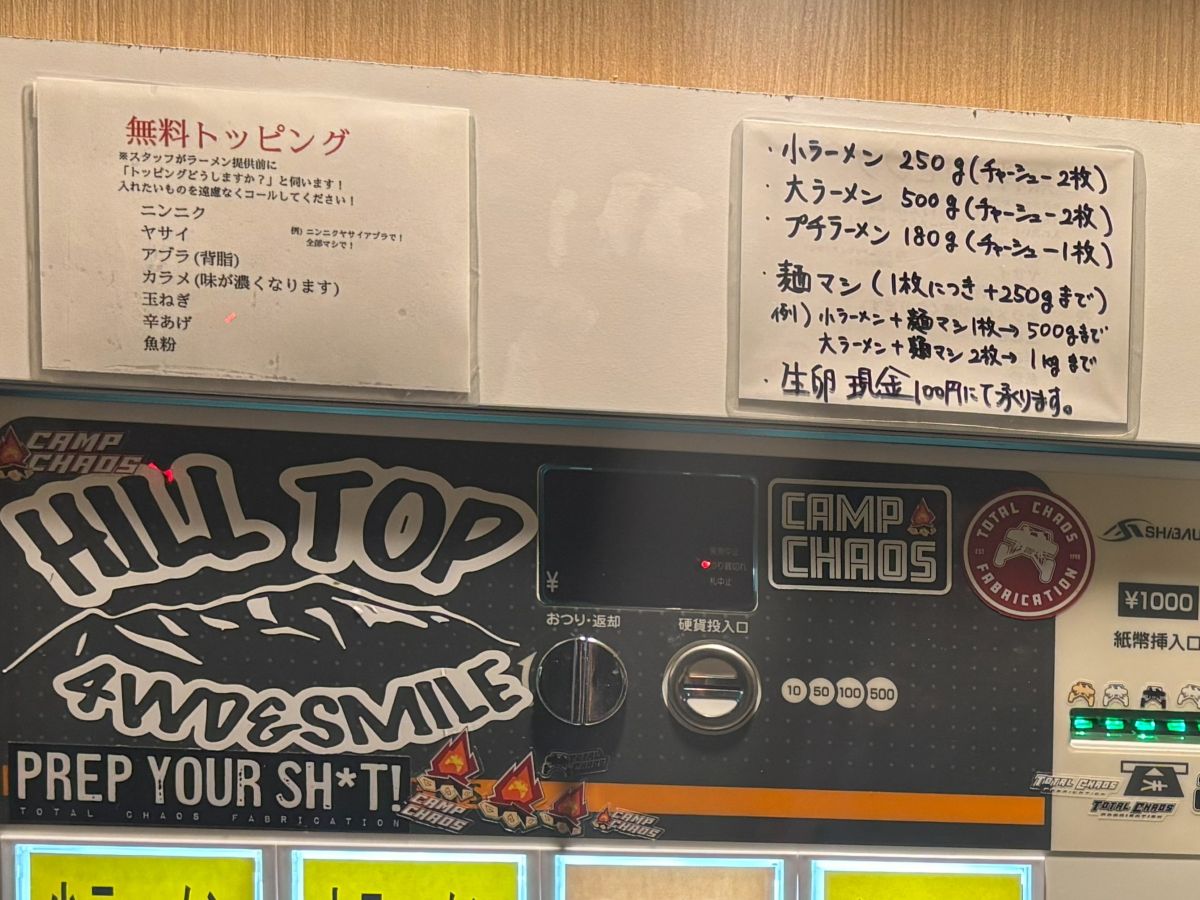 無料トッピング
※スタッフがラーメン提供前に
「トッピングどうしますか？」と伺います！
入れたいものを遠慮なくコールしてください！
ニンニク
ヤサイ
例) ニンニクヤサイアブラで！
全部マシで！
アブラ(背脂)
カラメ(味が濃くなります)
玉ねぎ
辛あげ
魚粉
・小ラーメン 250g(チャーシュー2枚)
・大ラーメン 500g(チャーシュー2枚)
・プチラーメン 180g(チャーシュー1枚)
・麺マシ(1枚につき+250gまで)
例) 小ラーメン+麺マシ1枚→500gまで
大ラーメン+麺マシ2枚→1kgまで
・生卵 現金100円にて承ります。
CAMP
CHAOS
HILL TOP
4WD&SMILE
PREP YOUR SH*T!
TOTAL CHAOS FABRICATION
CAMP
CHAOS
CAMP
CHAOS
¥
札中止
おつり・返却
硬貨投入口
10 50 100 500
CAMP
CHAOS
TOTAL CHAOS
EST 1998
FABRICATION
SHIBAU
¥1000
紙幣挿入口
TOTAL CHAOS
FABRICATION
TOTAL CHAOS
FABRICATION